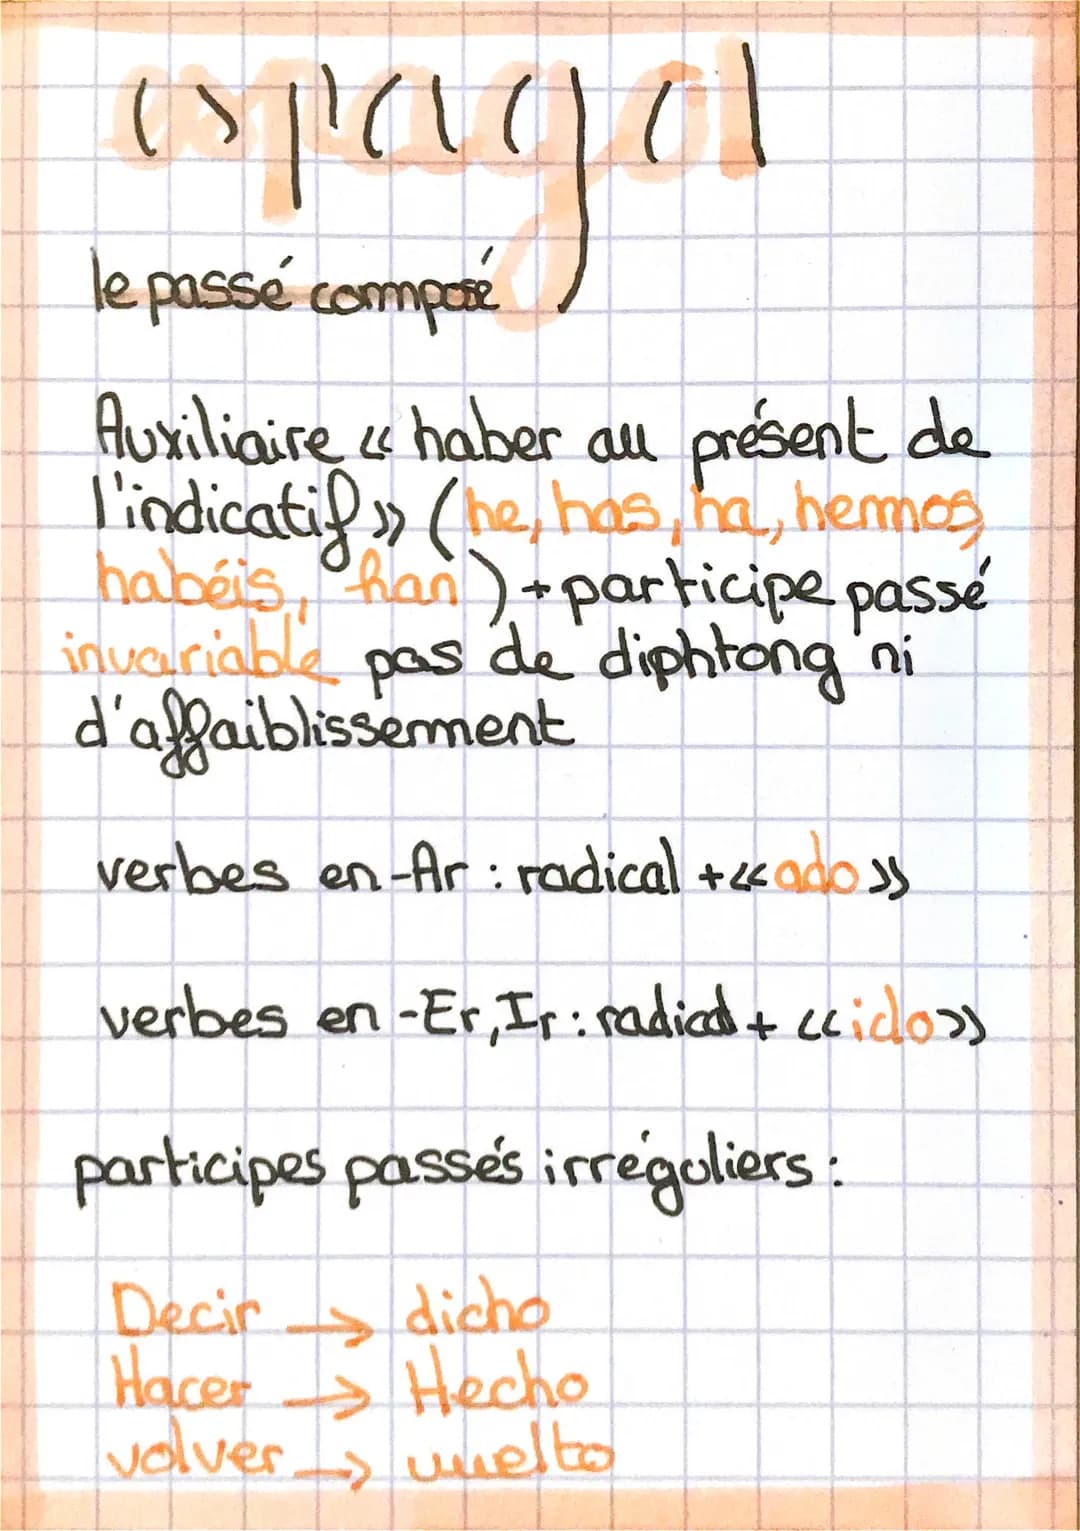 espagol
le passé commposé
Auxiliaire « haber au présent de
l'indicatif » (he, has, ha, hemos,
habéis, han) + participe passé
invariable pas de diphtong ni
d'affaiblissement
verbes en -Ar : radical + « ado »
verbes en -Er, Ir : radical + « ido »
participes passés irréguliers :
Decir → dicho
Hacer → Hecho
volver → vuelto